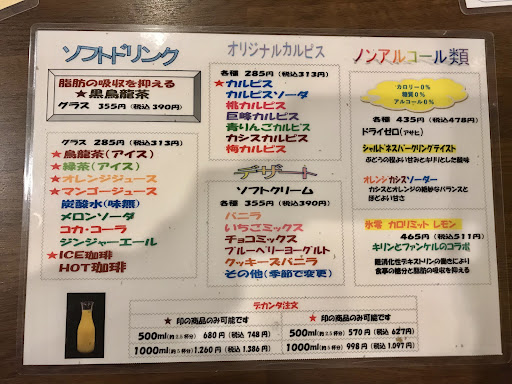 ソフトドリンク
脂肪の吸収を抑える
★黒烏龍茶
グラス 355円(税込390円)
グラス 285円(税込313円)
★烏龍茶(アイス)
★緑茶(アイス)
★オレンジジュース
★マンゴージュース
炭酸水(味無)
メロンソーダ
コカ・コーラ
ジンジャーエール
★ICE珈琲
HOT珈琲
オリジナルカルピス
各種 285円(税込313円)
★カルピス
カルピスソーダ
桃カルピス
巨峰カルピス
青りんごカルピス
カシスカルピス
梅カルピス
デザート
ソフトクリーム
各種 355円(税込390円)
バニラ
いちごミックス
チョコミックス
ブルーベリーヨーグルト
クッキーズバニラ
その他(季節で変更)
ノンアルコール類
カロリー0%
糖質0%
アルコール0%
各種 435円(税込478円)
ドライゼロ(アサヒ)
シャルドネスパークリングテイスト
ぶどうの程よい甘みとキリとした酸味
オレンジカシスソーダー
カシスとオレンジの絶妙なバランスと
ほどよい甘さ
氷零 カロリミット レモン
465円(税込511円)
キリンとファンケルのコラボ
難消化性デキストリンの働きにより
食事の糖分と脂肪の吸収を抑える
デカンタ注文
★ 印の商品のみ可能です
500ml(約2.5杯分) 680円(税込748円)
1000ml(約5杯分) 1,260円(税込1,386円)
★ 印の商品のみ可能です
500ml(約2.5杯分) 570円(税込627円)
1000ml(約5杯分) 998円(税込1,097円)